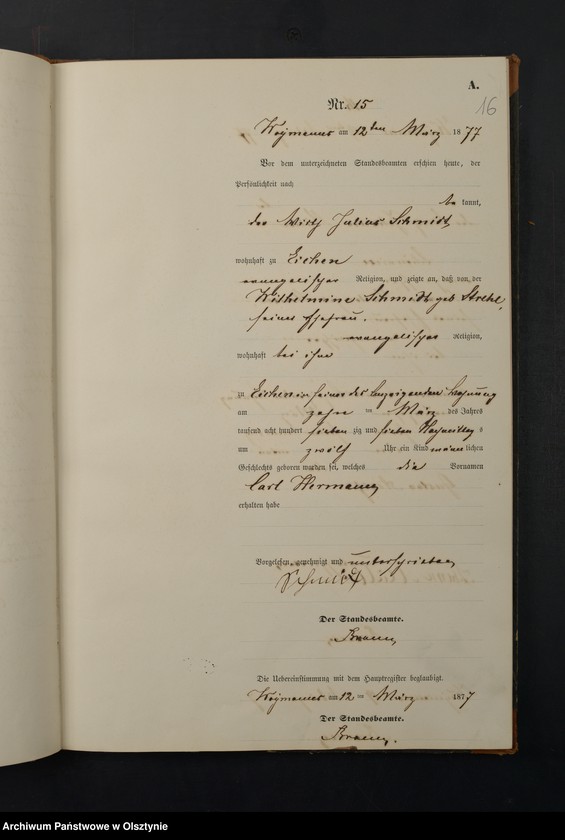 A.
16
Nr. 15
Weymanns am 12ten März 1877
Vor dem unterzeichneten Standesbeamten erschien heute, der
Persönlichkeit nach
be kannt,
der Wirth Julius Schmidt,
wohnhaft zu Eichen
evangelischer Religion, und zeigte an, daß von der
Wilhelmine Schmidt geb Strehl,
seiner Ehefrau,
evangelischer Religion,
wohnhaft bei ihm
zu Eichen in seiner des Anzeigenden Wohnung
am zehn ten März des Jahres
tausend acht hundert sieben zig und sieben Nachmittags
um zwölf Uhr ein Kind männ lichen
Geschlechts geboren worden sei, welches die Vornamen
Carl Hermann
erhalten habe
Vorgelesen, genehmigt und unterschrieben
Schmidt
Der Standesbeamte.
Die Uebereinstimmung mit dem Hauptregister beglaubigt.
Weymanns am 12 ten März 1877
Der Standesbeamte.
Archiwum Państwowe w Olsztynie